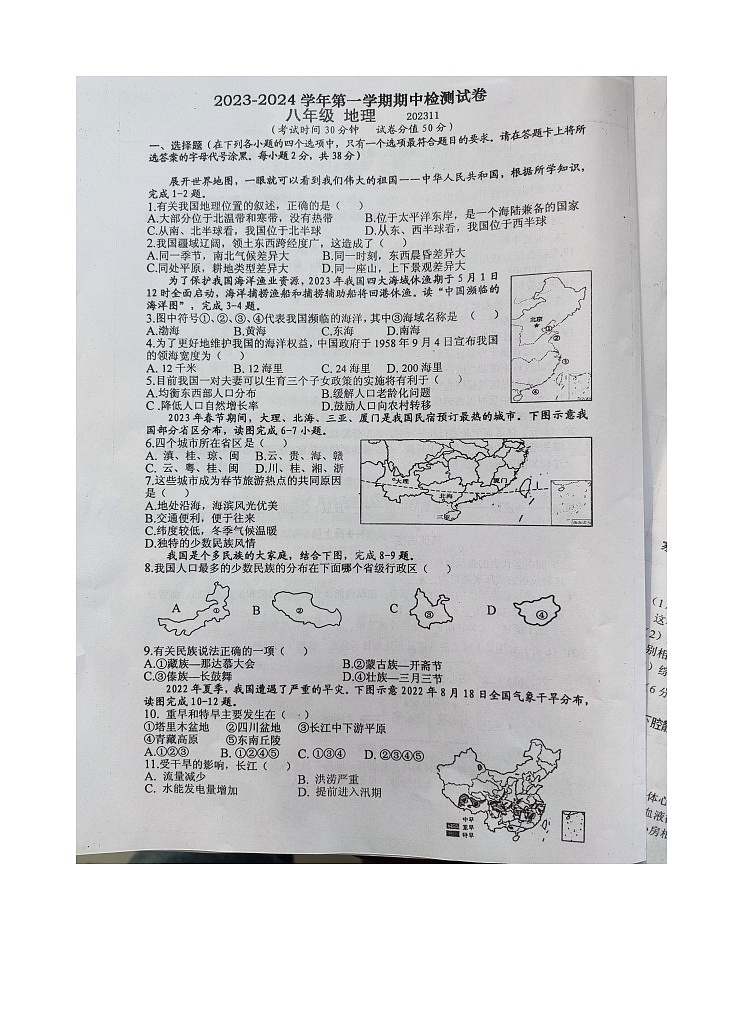 2023-2024 学年第一学期期中检测试卷
八年级 地理 202311
(考试时间30分钟 试卷分值50分)
一、选择题(在下列各小题的四个选项中，只有一个选项最符合题目的要求。请在答题卡上将所
选答案的字母代号涂黑。每小题2分，共38分)
展开世界地图，一眼就可以看到我们伟大的祖国——中华人民共和国，根据所学知识，
完成1-2题。
1.有关我国地理位置的叙述，正确的是( )
A.大部分位于北温带和寒带，没有热带 B.位于太平洋东岸，是一个海陆兼备的国家
C.从南、北半球看，我国位于北半球 D.从东、西半球看，我国位于西半球
2.我国疆域辽阔，领土东西跨经度广，这造成了( )
A.同一季节，南北气候差异大 B.同一时刻，东西晨昏差异大
C.同处平原，耕地类型差异大 D.同一座山，上下景观差异大
为了保护我国海洋渔业资源，2023年我国四大海域休渔期于5月1日
12时全面启动，海洋捕捞渔船和捕捞辅助船将回港休渔。读“中国濒临的
海洋图”，完成3-4题。
3.图中符号①、②、③、④代表我国濒临的海洋，其中③海域名称是 ( )
A.渤海 B.黄海 C.东海 D.南海
4.为了更好地维护我国的海洋权益，中国政府于1958年9月4日宣布我国
的领海宽度为( )
A. 12千米 B. 12海里 C. 24海里 D. 200海里
5.目前我国一对夫妻可以生育三个子女政策的实施将有利于( )
A.均衡东西部人口分布 B.缓解人口老龄化问题
C.降低人口自然增长率 D.鼓励人口向农村转移
北京
①
②
③
④
2023年春节期间，大理、北海、三亚、厦门是我国民宿预订最热的城市。下图示意我
国部分省区分布，读图完成6-7小题。
6.四个城市所在省区是( )
A. 滇、桂、琼、闽 B.云、贵、海、赣
C. 云、粤、桂、闽 D.川、桂、湘、浙
7.这些城市成为春节旅游热点的共同原因
是( )
A.地处沿海，海滨风光优美
B.交通便利，便于往来
C.纬度较低，冬季气候温暖
D.独特的少数民族风情
大理
北海
三亚
厦门
我国是个多民族的大家庭，结合下图，完成8-9题。
8.我国人口最多的少数民族的分布在下面哪个省级行政区( )
A ① B ② C ③ D ④
9.有关民族说法正确的一项( )
A.①藏族—那达慕大会 B.②蒙古族—开斋节
C.③傣族—长鼓舞 D.④壮族—三月三节
2022年夏季，我国遭遇了严重的旱灾。下图示意2022年8月18日全国气象干旱分布，
读图完成10-12题。
10. 重旱和特旱主要发生在( )
①塔里木盆地 ②四川盆地 ③长江中下游平原
④青藏高原 ⑤东南丘陵
A.①②③ B. ①②④⑤ C. ①③④ D. ②③④⑤
11.受干旱的影响，长江( )
A. 流量减少 B. 洪涝严重
C. 水能发电量增加 D. 提前进入汛期
中旱
重旱
特旱